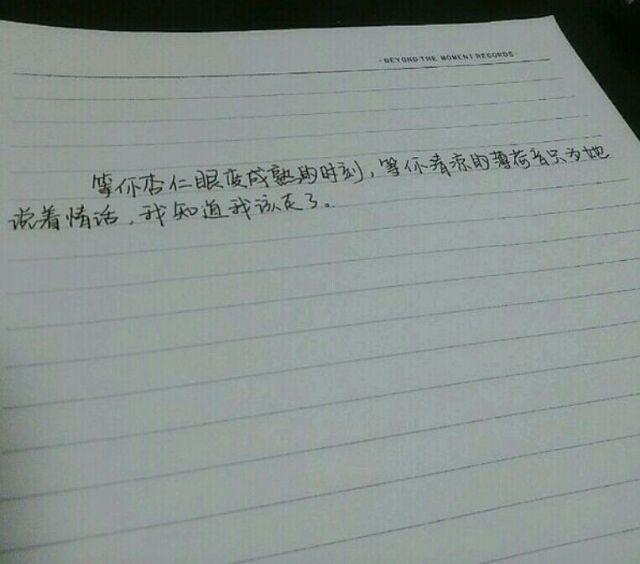 ·BEYOND THE MOMENT RECORDS·
等你杏仁眼变成熟的时刻，等你清凉的薄荷音只为她
说着情话，我知道我该走了。